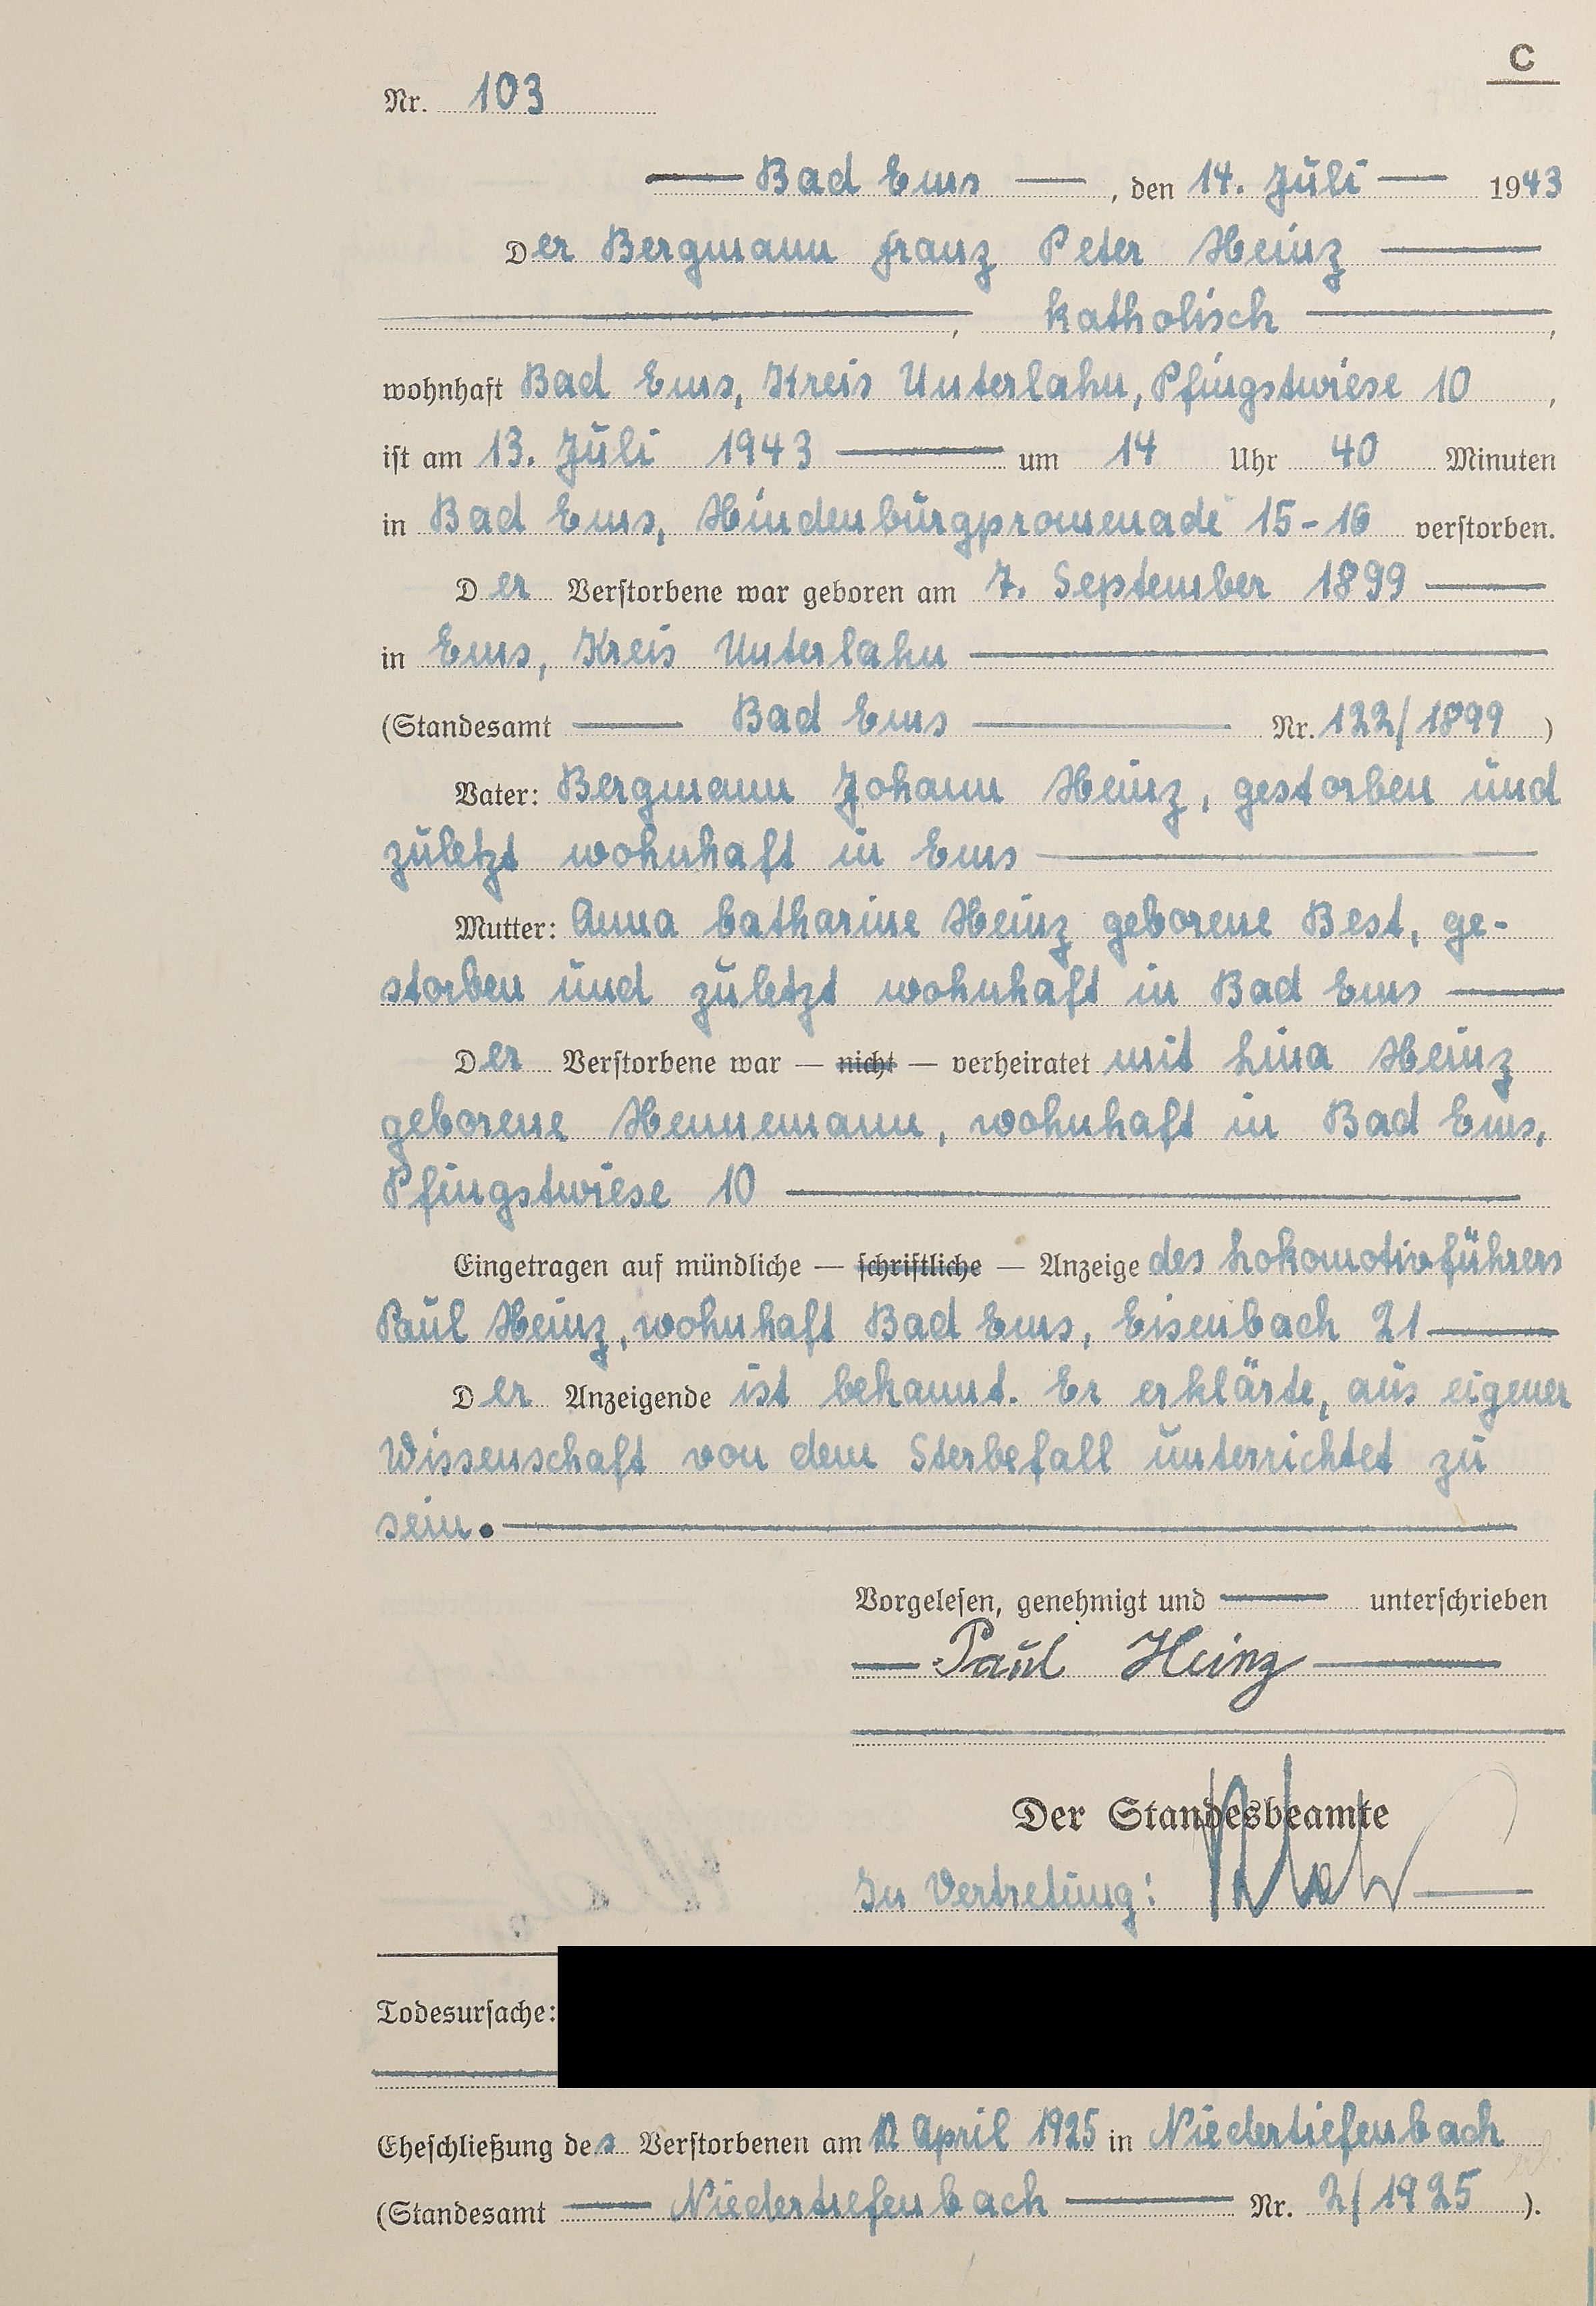 C
Nr. 103
Bad Ems, den 14. Juli 1943
Der Bergmann Franz Peter Heinz
, katholisch,
wohnhaft Bad Ems, Kreis Unterlahn, Pfingstwiese 10,
ist am 13. Juli 1943 um 14 Uhr 40 Minuten
in Bad Ems, Hindenburgpromenade 15-16 verstorben.
Der Verstorbene war geboren am 7. September 1899
in Ems, Kreis Unterlahn
(Standesamt Bad Ems Nr. 122/1899)
Vater: Bergmann Johann Heinz, gestorben und
zuletzt wohnhaft in Ems
Mutter: Anna Catharine Heinz geborene Best, ge-
storben und zuletzt wohnhaft in Bad Ems
Der Verstorbene war — nicht — verheiratet mit Lina Heinz
geborene Hennemann, wohnhaft in Bad Ems,
Pfingstwiese 10
Eingetragen auf mündliche — schriftliche — Anzeige des Lokomotivführers
Paul Heinz, wohnhaft Bad Ems, Eisenbach 21
Der Anzeigende ist bekannt. Er erklärte, aus eigener
Wissenschaft von dem Sterbefall unterrichtet zu
sein.
Vorgelesen, genehmigt und unterschrieben
Paul Heinz
Der Standesbeamte
In Vertretung:
Todesursache:
Eheschließung des Verstorbenen am April 1925 in Niedertiefenbach
(Standesamt Niedertiefenbach Nr. 2/1925).